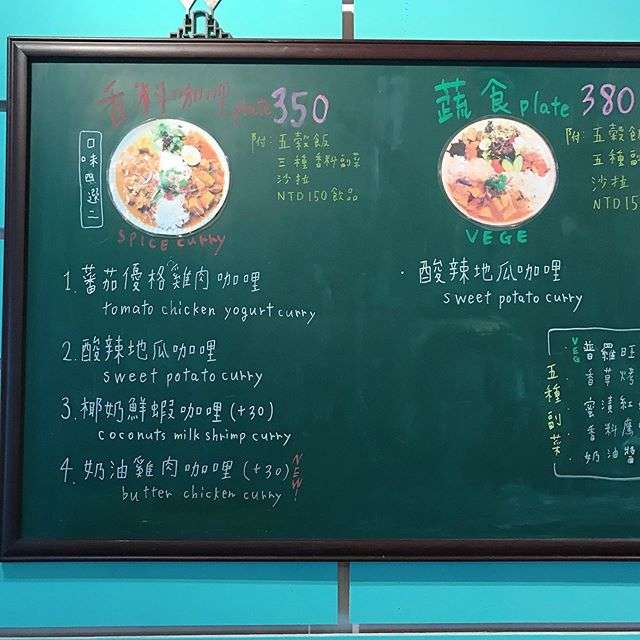 香料咖哩 plate 350
口味四選二
附: 五穀飯
三種香料副菜
沙拉
NTD 150 飲品
SPICE curry
1. 蕃茄優格雞肉咖哩
tomato chicken yogurt curry
2. 酸辣地瓜咖哩
sweet potato curry
3. 椰奶鮮蝦咖哩 (+30)
coconuts milk shrimp curry
4. 奶油雞肉咖哩 (+30) NEW!
butter chicken curry
蔬食 plate 380
附: 五穀飯
五種副
沙拉
NTD 150
VEGE
· 酸辣地瓜咖哩
sweet potato curry
五種副菜
VEG
· 普羅旺
· 香草烤
· 蜜漬紅
· 香料鷹
· 奶油醬